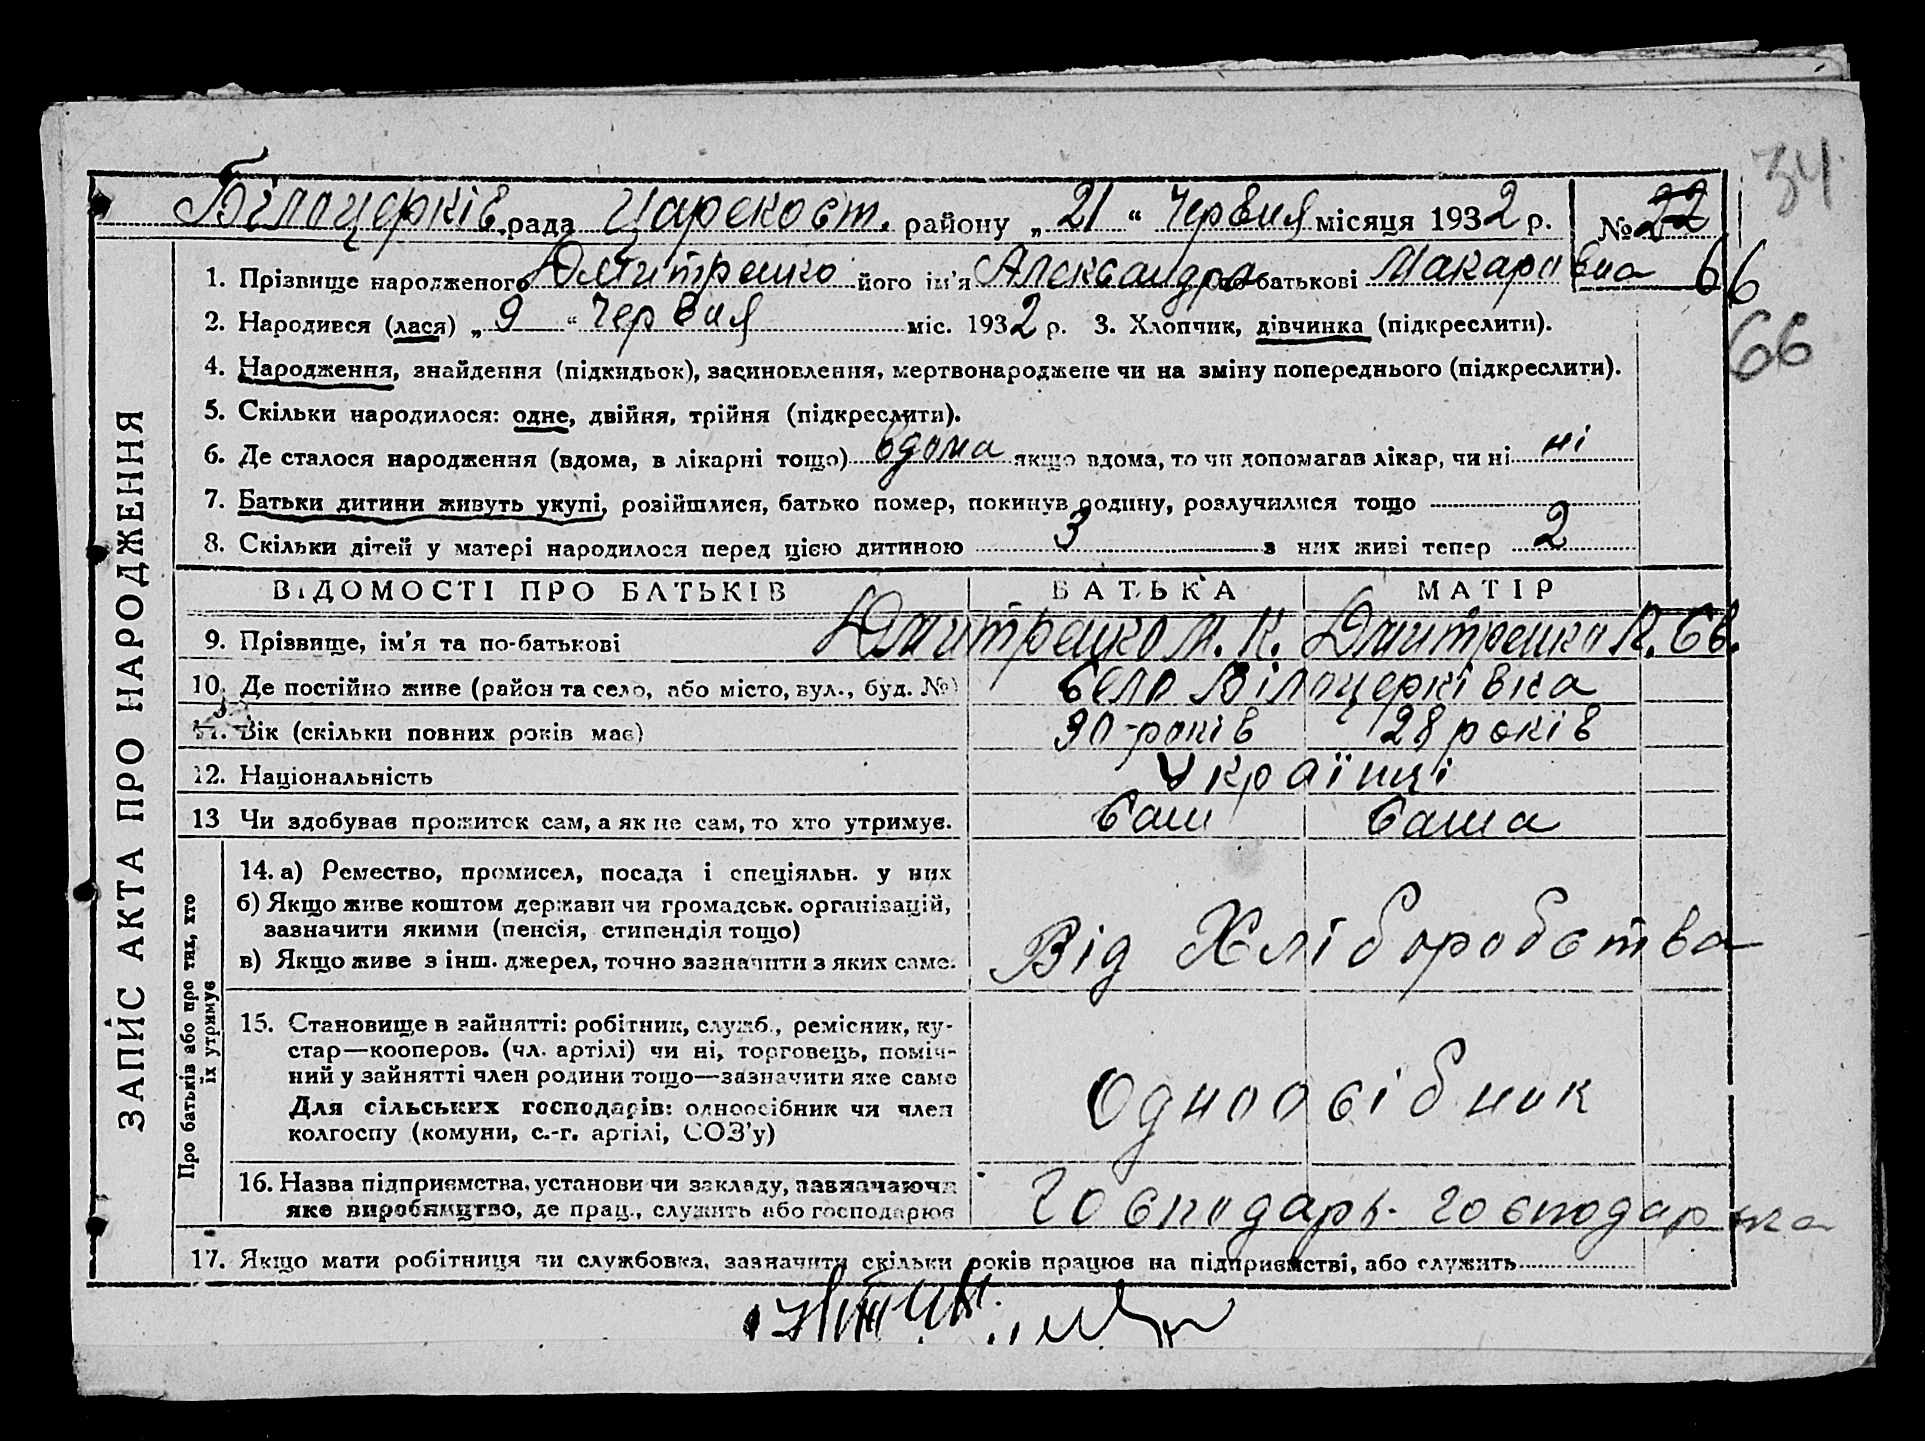 34
Білоцерків. рада Царекост. району „ 21 “ Червня місяця 1932 р. № 22
66
1. Прізвище народженого Дмитренко його ім'я Александра по батькові Макаровна
2. Народився (лася) „ 9 “ Червня міс. 1932 р. 3. Хлопчик, дівчинка (підкреслити).
66
4. Народження, знайдення (підкидьок), засиновлення, мертвонароджене чи на зміну попереднього (підкреслити).
5. Скільки народилося: одне, двійня, трійня (підкреслити).
6. Де сталося народження (вдома, в лікарні тощо) вдома якщо вдома, то чи допомагав лікар, чи ні ні
7. Батьки дитини живуть укупі, розійшлися, батько помер, покинув родину, розлучилися тощо
8. Скільки дітей у матері народилося перед цією дитиною 3 з них живі тепер 2
ЗАПИС АКТА ПРО НАРОДЖЕННЯ
ВІДОМОСТІ ПРО БАТЬКІВ БАТЬКА МАТІР
9. Прізвище, ім'я та по-батькові Дмитренко М. К. Дмитренко К. Св.
10. Де постійно живе (район та село, або місто, вул., буд. №) село Білоцерківка
11. Вік (скільки повних років має) 30-років 28 років
12. Національність Українці
13 Чи здобував прожиток сам, а як не сам, то хто утримує. Сам Сама
Про батьків або про тих, хто
їх утримує
14. а) Ремество, промисел, посада і спеціяльн. у них
б) Якщо живе коштом держави чи громадськ. організацій,
зазначити якими (пенсія, стипендія тощо)
в) Якщо живе з інш. джерел, точно зазначити з яких саме.
Від Хліборобства
15. Становище в зайнятті: робітник, служб., ремісник, ку-
стар—кооперов. (чл. артілі) чи ні, торговець, поміч-
ний у зайнятті член родини тощо—зазначити яке саме
Для сільських господарів: одноосібник чи член
колгоспу (комуни, с.-г. артілі, СОЗ'у)
Одноосібник
16. Назва підприємства, установи чи закладу, зазначаючи
яке виробництво, де прац., служить або господарює
Господарь. господарка
17. Якщо мати робітниця чи службовка, зазначити скільки років працює на підприємстві, або служить